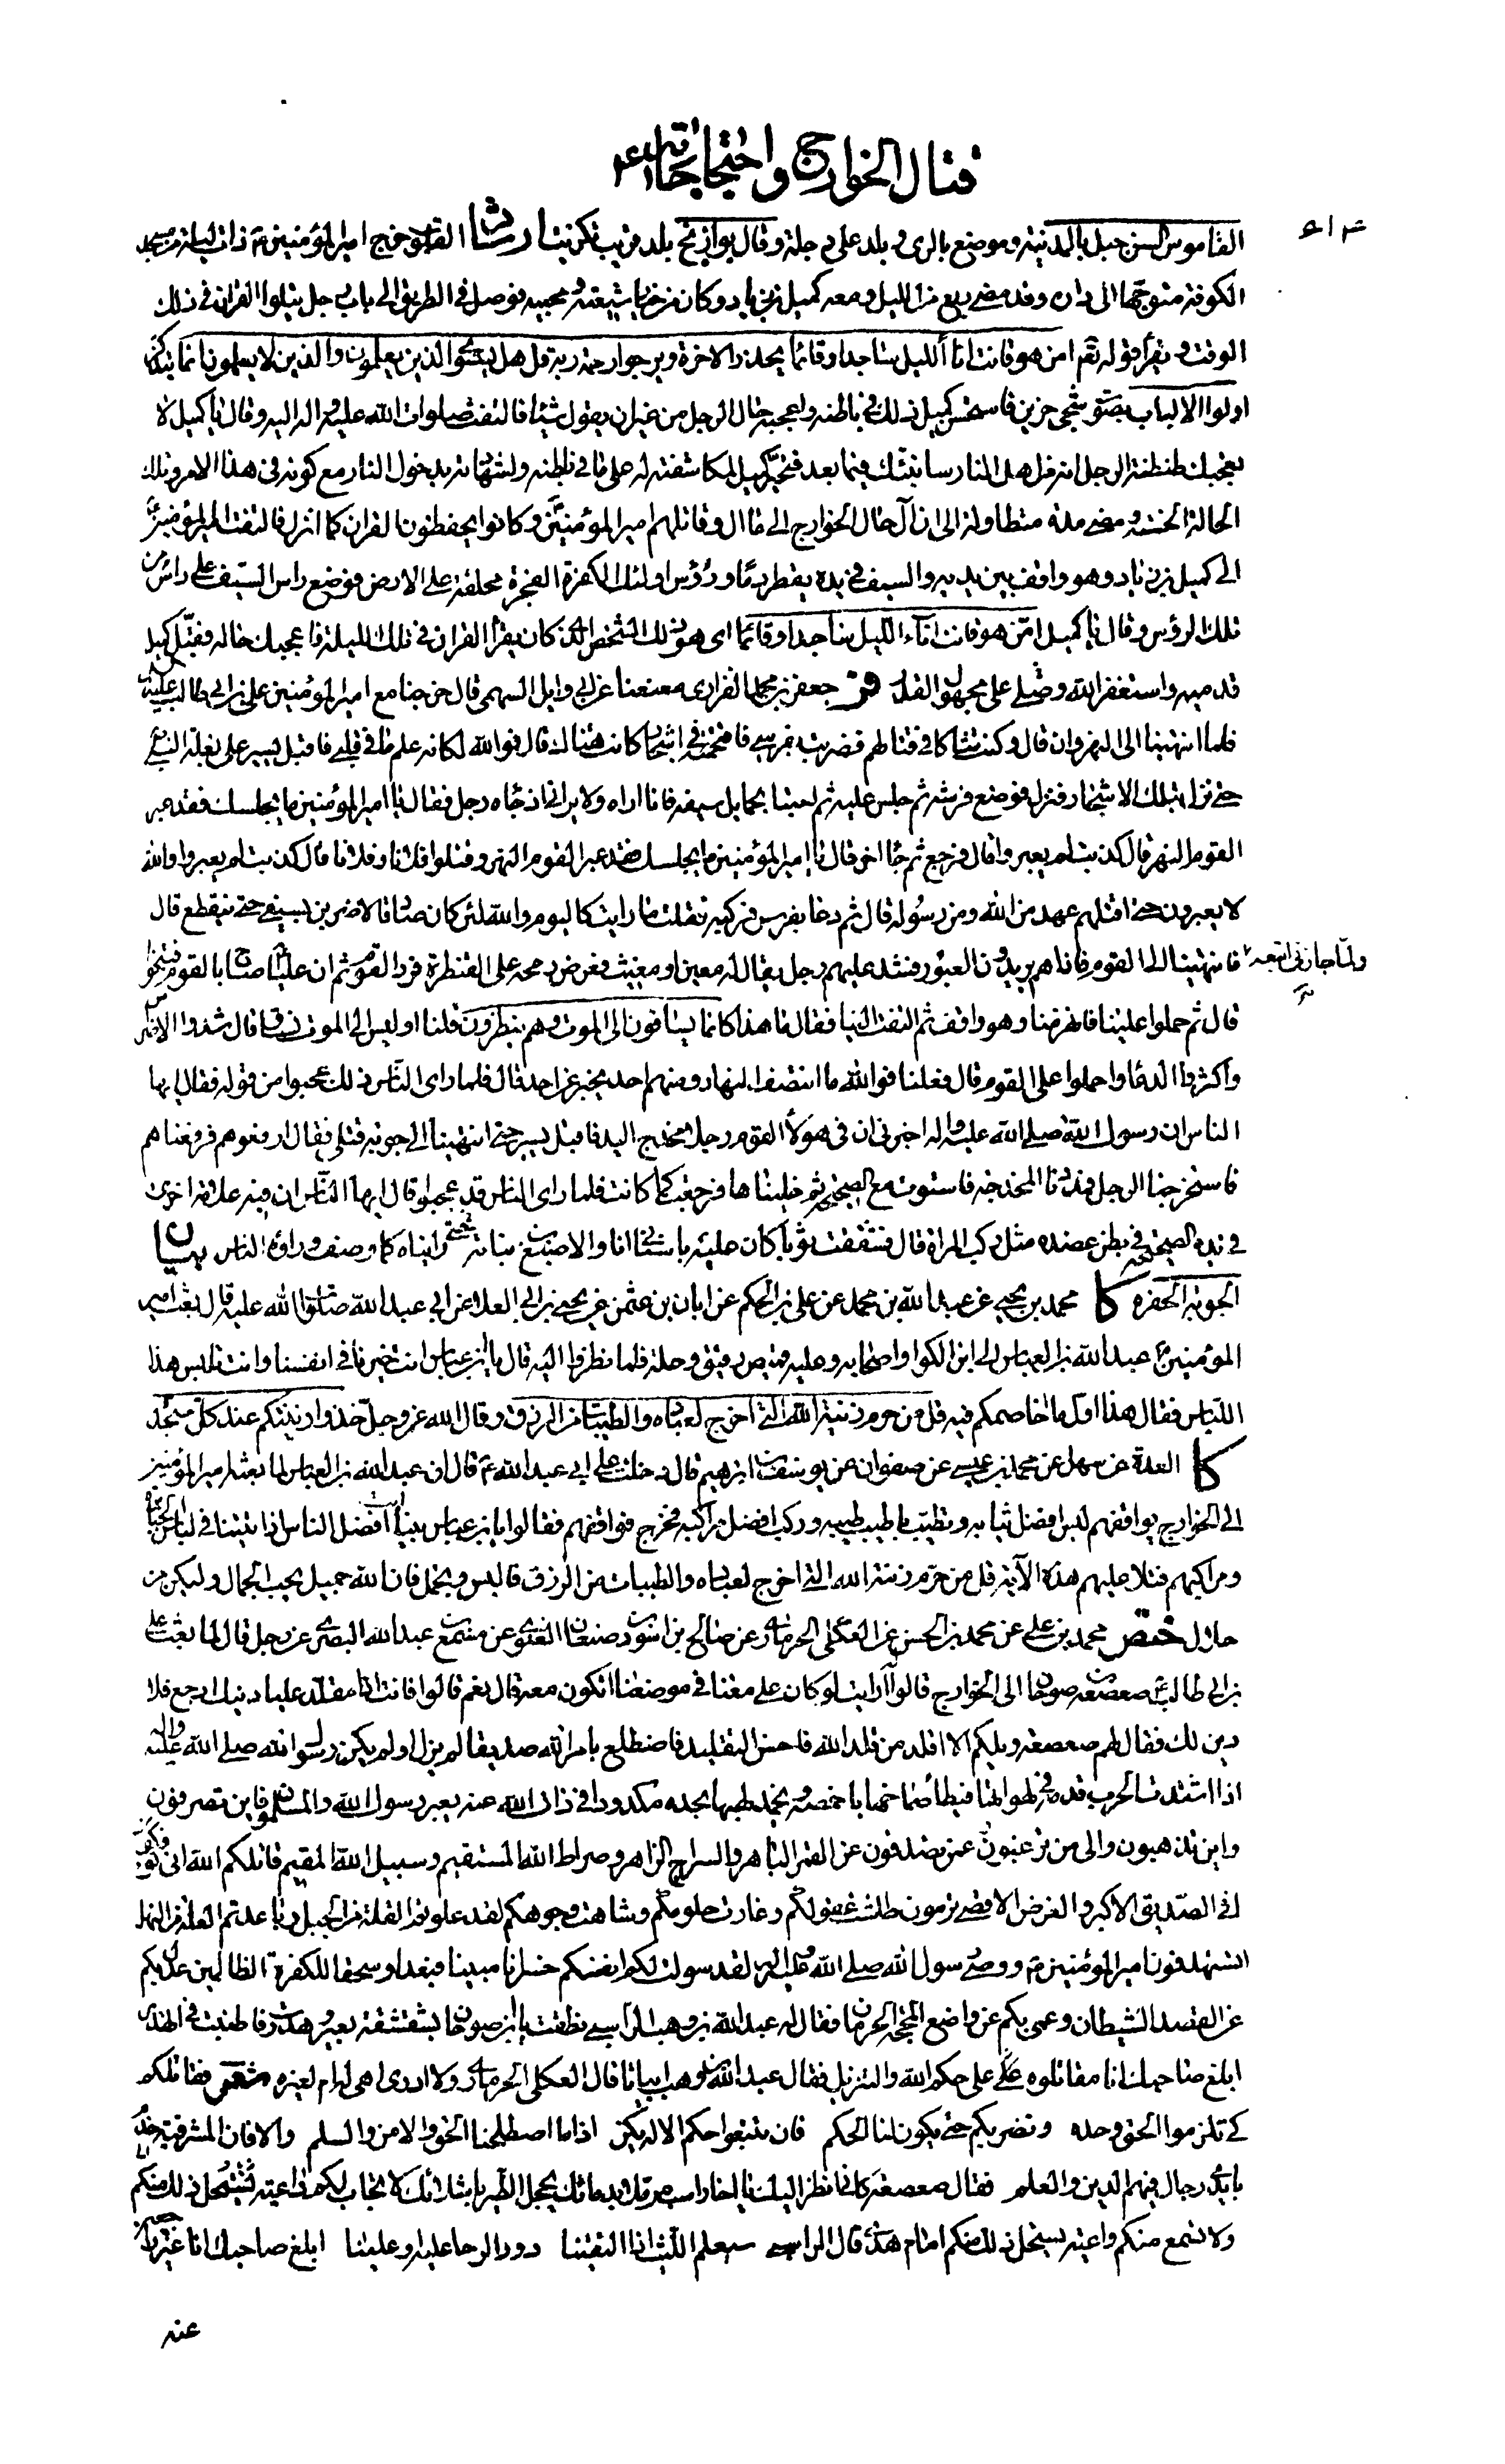 قتال الخوارج واحتجاجاته ع
٤١٥
القاموس السن جبل بالمدينة وموضع بالري وبلد على دجلة وقال بوازيج بلد قرب تكريت شا ارشاد القلوب خرج امير المؤمنين ع ذات ليلة من مسجد
الكوفة متوجها الى داره وقد مضى ربع من الليل ومعه كميل بن زياد وكان من خيار شيعته ومحبيه فوصل في الطريق الى باب رجل يتلوا القران في ذلك
الوقت ويقرأ قوله تعم امن هو قانت اناء الليل ساجدا وقائما يحذر الاخرة ويرجو رحمة ربه قل هل يستوى الذين يعلمون والذين لا يعلمون انما يتذكر
اولوا الالباب بصوت شجى حزين فاستحسن كميل ذلك في باطنه واعجبه حال الرجل من غير ان يقول شيئا فالتفت صلوات الله عليه واله اليه وقال يا كميل لا
يعجبك طنطنة الرجل انه من اهل النار سانبئك فيما بعد فتحير كميل لمكاشفته له على ما في باطنه ولشهادته بدخول النار مع كونه في هذا الامر وتلك
الحالة الحسنة ومضى مدة متطاولة الى ان آل حال الخوارج الى ما ال وقاتلهم امير المؤمنين ع وكانوا يحفظون القران كما انزل فالتفت امير المؤمنين ع
الى كميل بن زياد وهو واقف بين يديه والسيف في يده يقطر دما ورؤس اولئك الكفرة الفجرة محلقة على الارض فوضع راس السيف على راس من
تلك الرؤس وقال يا كميل امن هو قانت اناء الليل ساجدا وقائما اى هو ذلك الشخص الذى كان يقرأ القران في تلك الليلة فاعجبك حاله فقبل كميل
قدميه واستغفر الله وصلى على مجهول القدر فر جعفر بن محمد الفزارى معنعنا عن ابي وايل السهمى قال خرجنا مع امير المؤمنين على بن ابي طالب عليه السلام
فلما انتهينا الى النهروان قال وكنت شاكا في قتالهم فضربت بفرسي فاقحمته في اشجار كانت هناك قال فوالله لكانه علم ما في قلبي فاقبل يسير على بغلة النبي ص
حتى نزل بتلك الاشجار فنزل فوضع فرشه ثم جلس عليه ثم احتبا بحمايل سيفه فانا اراه ولا يراني اذ جاءه رجل فقال يا امير المؤمنين ما يجلسك فقد عبر
القوم النهر قال كذبت لم يعبروا قال فرجع ثم جاء اخر فقال يا امير المؤمنين ما يجلسك فقد عبر القوم النهر وقتلوا فلانا وفلانا قال كذبت لم يعبروا والله
لا يعبرون حتى اقتلهم عهد من الله ومن رسوله قال ثم دعا بفرس فركبه فقلت ما رايت كاليوم والله لئن كان صادقا لاضربن بسيفي حتى ينقطع قال
ولما جازني اتبعته فانتهينا الى القوم فاذا هم يريدون العبور فشد عليهم رجل يقال له معين او مغيث فعرض رمحه على القنطرة فرد القوم ثم ان عليا ع صاح بالقوم فتنحوا
قال ثم حملوا علينا فانهزمنا وهو واقف ثم التفت الينا فقال ما هذا كانما يساقون الى الموت وهم ينظرون قلنا اوليس الى الموت نساق قال شدوا الاضراس
واكثروا الدعا واحملوا على القوم قال ففعلنا فوالله ما انتصف النهار ومنهم احد يخبر عن احد قال فلما راى الناس ذلك عجبوا من قوله فقال ايها
الناس ان رسول الله صلى الله عليه واله اخبرني ان في هؤلاء القوم رجل مخدج اليد فاقبل يسير حتى انتهينا الى جوبة قتلى فقال ارفعوهم فرفعناهم
فاستخرجنا الرجل فمددنا المخدجة فاستوت مع الصحيحة ثم خليناها فرجعت كما كانت فلما راى الناس قد عجبوا قال ايها الناس ان فيه علامة اخرى
في يده الصحيحة في بطن عضده مثل ركب المراة قال فشققت ثوبا كان عليه باسناني انا والاصبغ بن نباتة حتى رايناه كما وصف وراوه الناس بيان
الجوبة الحفرة كا محمد بن يحيى عن عبد الله بن محمد عن على بن الحكم عن ابان بن عثمن عن يحيى بن ابي العلا عن ابي عبد الله صلوات الله عليه قال بعث امير
المؤمنين ع عبد الله بن العباس الى ابن الكوا واصحابه وعليه قميص رقيق وحلة فلما نظروا اليه قال يا ابن عباس انت خيرنا في انفسنا وانت تلبس هذا
اللباس فقال هذا اول ما اخاصمكم فيه قل من حرم زينة الله التي اخرج لعباده والطيبات من الرزق وقال الله عز وجل خذوا زينتكم عند كل مسجد
كا العدة عن سهل عن محمد بن عيسى عن صفوان عن يوسف بن ابرهيم قال دخلت على ابي عبد الله ع قال ان عبد الله بن العباس لما بعثه امير المؤمنين
الى الخوارج يواقفهم لبس افضل ثيابه وتطيب باطيب طيبه وركب افضل مراكبه فخرج فواقفهم فقالوا يا بن عباس بينا انت افضل الناس اذ اتيتنا في لباس الجبابرة
ومراكبهم فتلا عليهم هذه الآية قل من حرم زينة الله التي اخرج لعباده والطيبات من الرزق فالبس وتجمل فان الله جميل يحب الجمال وليكن من
حلال ختص محمد بن على عن محمد بن الحسن عن العكلى الحرمازى عن صالح بن اسود بن صنعان الغنوى عن مسمع بن عبد الله البصرى عن رجل قال لما بعث على
بن ابي طالب ع صعصعة بن صوحان الى الخوارج قالوا له ارايت لو كان على معنا في موضعنا اتكون معه قال نعم قالوا فانت اذا مقلد عليا دينك ارجع فلا
دين لك فقال لهم صعصعة ويلكم الا اقلد من قلد الله فاحسن التقليد فاضطلع بامر الله صديقا لم يزل اولم يكن رسول الله صلى الله عليه واله
اذا اشتدت الحرب قدمه في لهواتها فيطأ صماخها باخمصه ويخمد لهبها بحده مكدودا في ذات الله عنه يعبر رسول الله والمسلمون فاين تصرفون
واين تذهبون والى من ترغبون وعمن تصدفون عن القمر الباهر والسراج الزاهر وصراط الله المستقيم وسبيل الله المقيم قاتلكم الله انى تؤفكون
افي الصديق الاكبر والغرض الاقصى ترمون طاشت عقولكم وغارت حلومكم وشاهت وجوهكم لقد علوتم القلة من الجبل وباعدتم العلة من النهل
اتستهدفون امير المؤمنين ع ووصى رسول الله صلى الله عليه واله لقد سولت لكم انفسكم خسرانا مبينا فبعدا وسحقا للكفرة الظالمين عدل بكم
عن القصد الشيطان وعمى بكم عن واضح المحجة الحرمان فقال له عبد الله بن وهب الراسبي نطقت يا ابن صوحان بشقشقة بعير وهدرت فاطنبت في الهدير
ابلغ صاحبك انا مقاتلوه على حكم الله والتنزيل فقال عبد الله بن وهب ابياتا قال العكلى الحرمازى ولا ادرى اهى له ام لغيره شعر فقاتلكم
كي تلزموا الحق وحده ونضربكم حتى يكون لنا الحكم فان تتبعوا حكم الاله يكن اذا ما اصطلحنا الحق والامن والسلم والا فان المشرفية محذم
بايدى رجال فيهم الدين والعلم فقال صعصعة كاني انظر اليك يا اخا راسب مترملا بدمائك يحجل الطير باشلائك لا تجاب لكم داعية
ولا تسمع منكم واعية يستحل ذلك منكم امام هدى قال الراسبي سيعلم الليث اذا التقينا دور الرحا عليه وعلينا ابلغ صاحبك انا غير راجعين
عنه